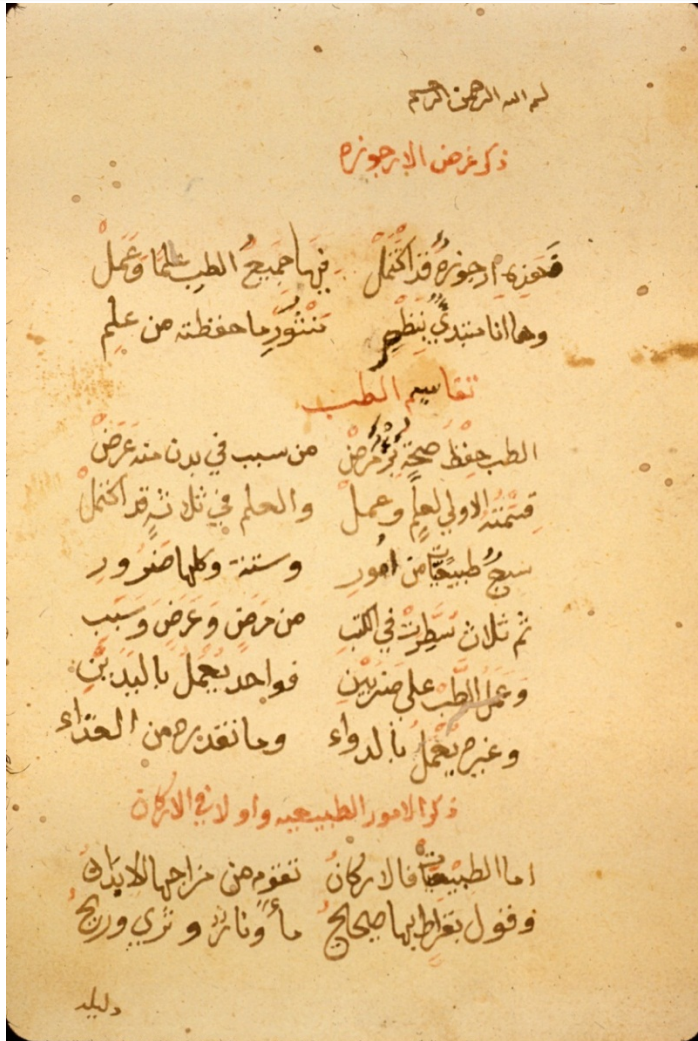 بسم الله الرحمن الرحيم
ذكر غرض الارجوزه
فهذه ارجوزةٌ قد اكتملْ فيها جميعُ الطبِ علمًا وَعَملْ
وها انا مبتدئٌ بنظمِ منثورِ ما حفظته من علمِ
تقاسيم الطب
الطب حفظ صحةٍ بُرْءُ مرضْ من سبب في بدن منه عَرَضْ
قسمته الاولي لعلمٍ وعملْ والعلم في ثلاثةٍ قد اكتملْ
سبعٌ طبيعيات من امُورِ وستة وكلها ضرورِ
ثم ثلاث سُطِّرتْ في الكتبِ من مَرضٍ وَعَرَضٍ وَسَبَب
وَعَملُ الطِّب على ضربينِ فواحد يُعْملُ باليَدَيْنِ
وغيره يُعْملُ بالدواء وما نقدره من الغذاء
ذكر الامور الطبيعيه واولا في الاركان
اما الطبيعيات فالاركانُ تقوم من مزاجها الابدانُ
وقول بقراط بها صحيحُ مأٌ ونارٌ وثري وريحُ
دليله